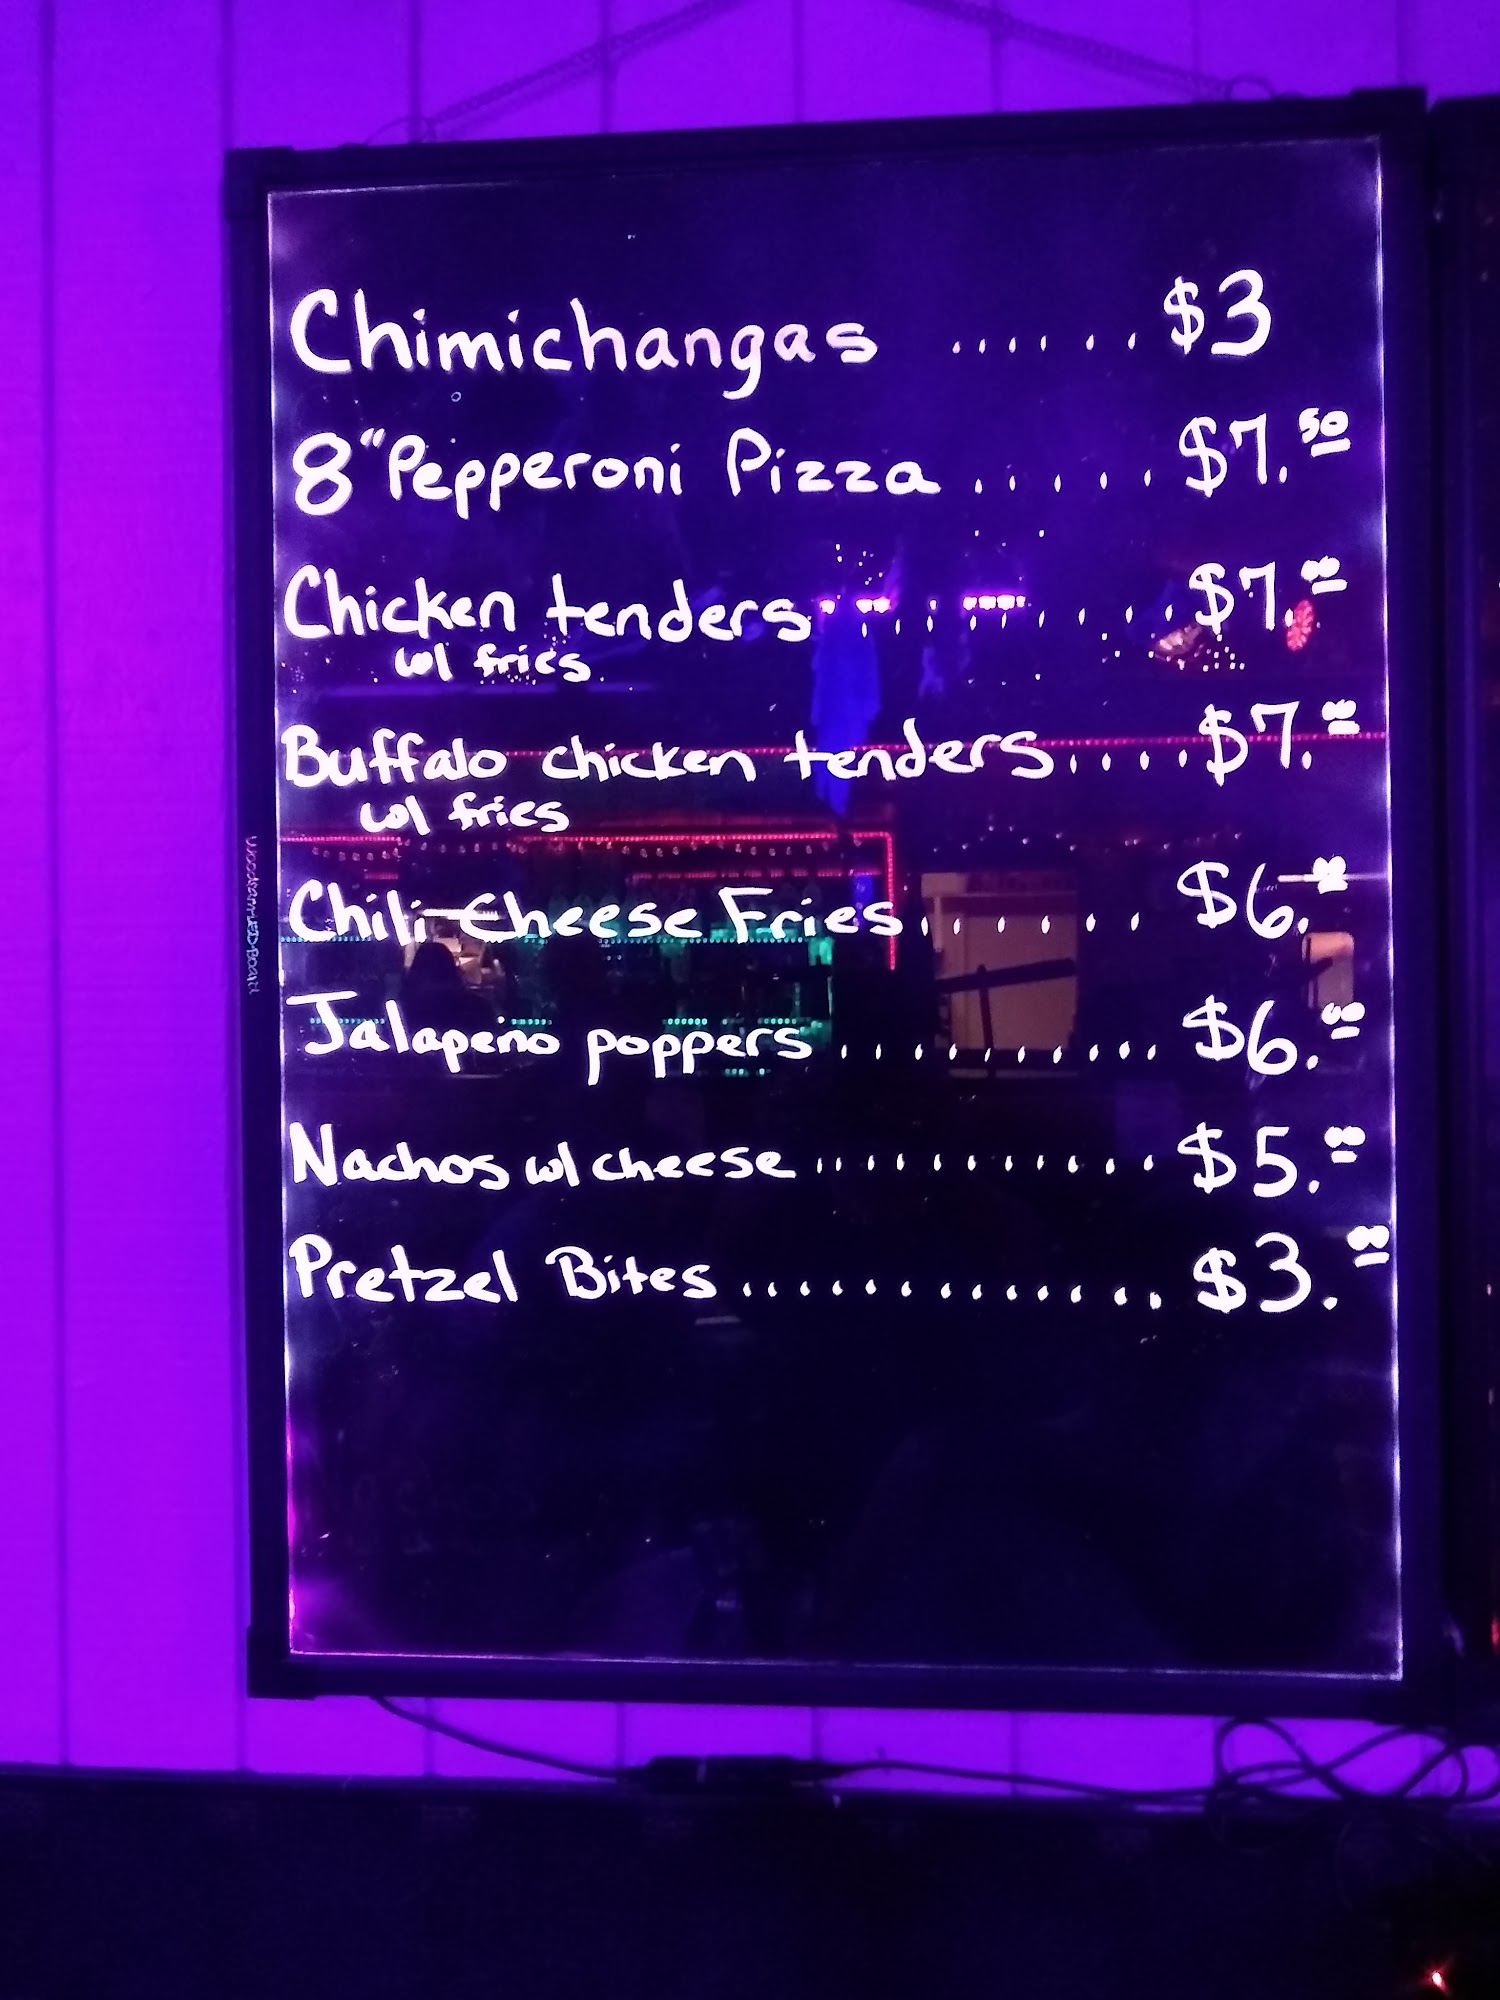 Chimichangas ...... $3
8" Pepperoni Pizza ..... $7.50
Chicken tenders ......... $7.00
w/ fries
Buffalo chicken tenders .... $7.00
w/ fries
Chili Cheese Fries ...... $6.00
Jalapeño poppers .......... $6.00
Nachos w/ cheese .......... $5.00
Pretzel Bites ............. $3.00